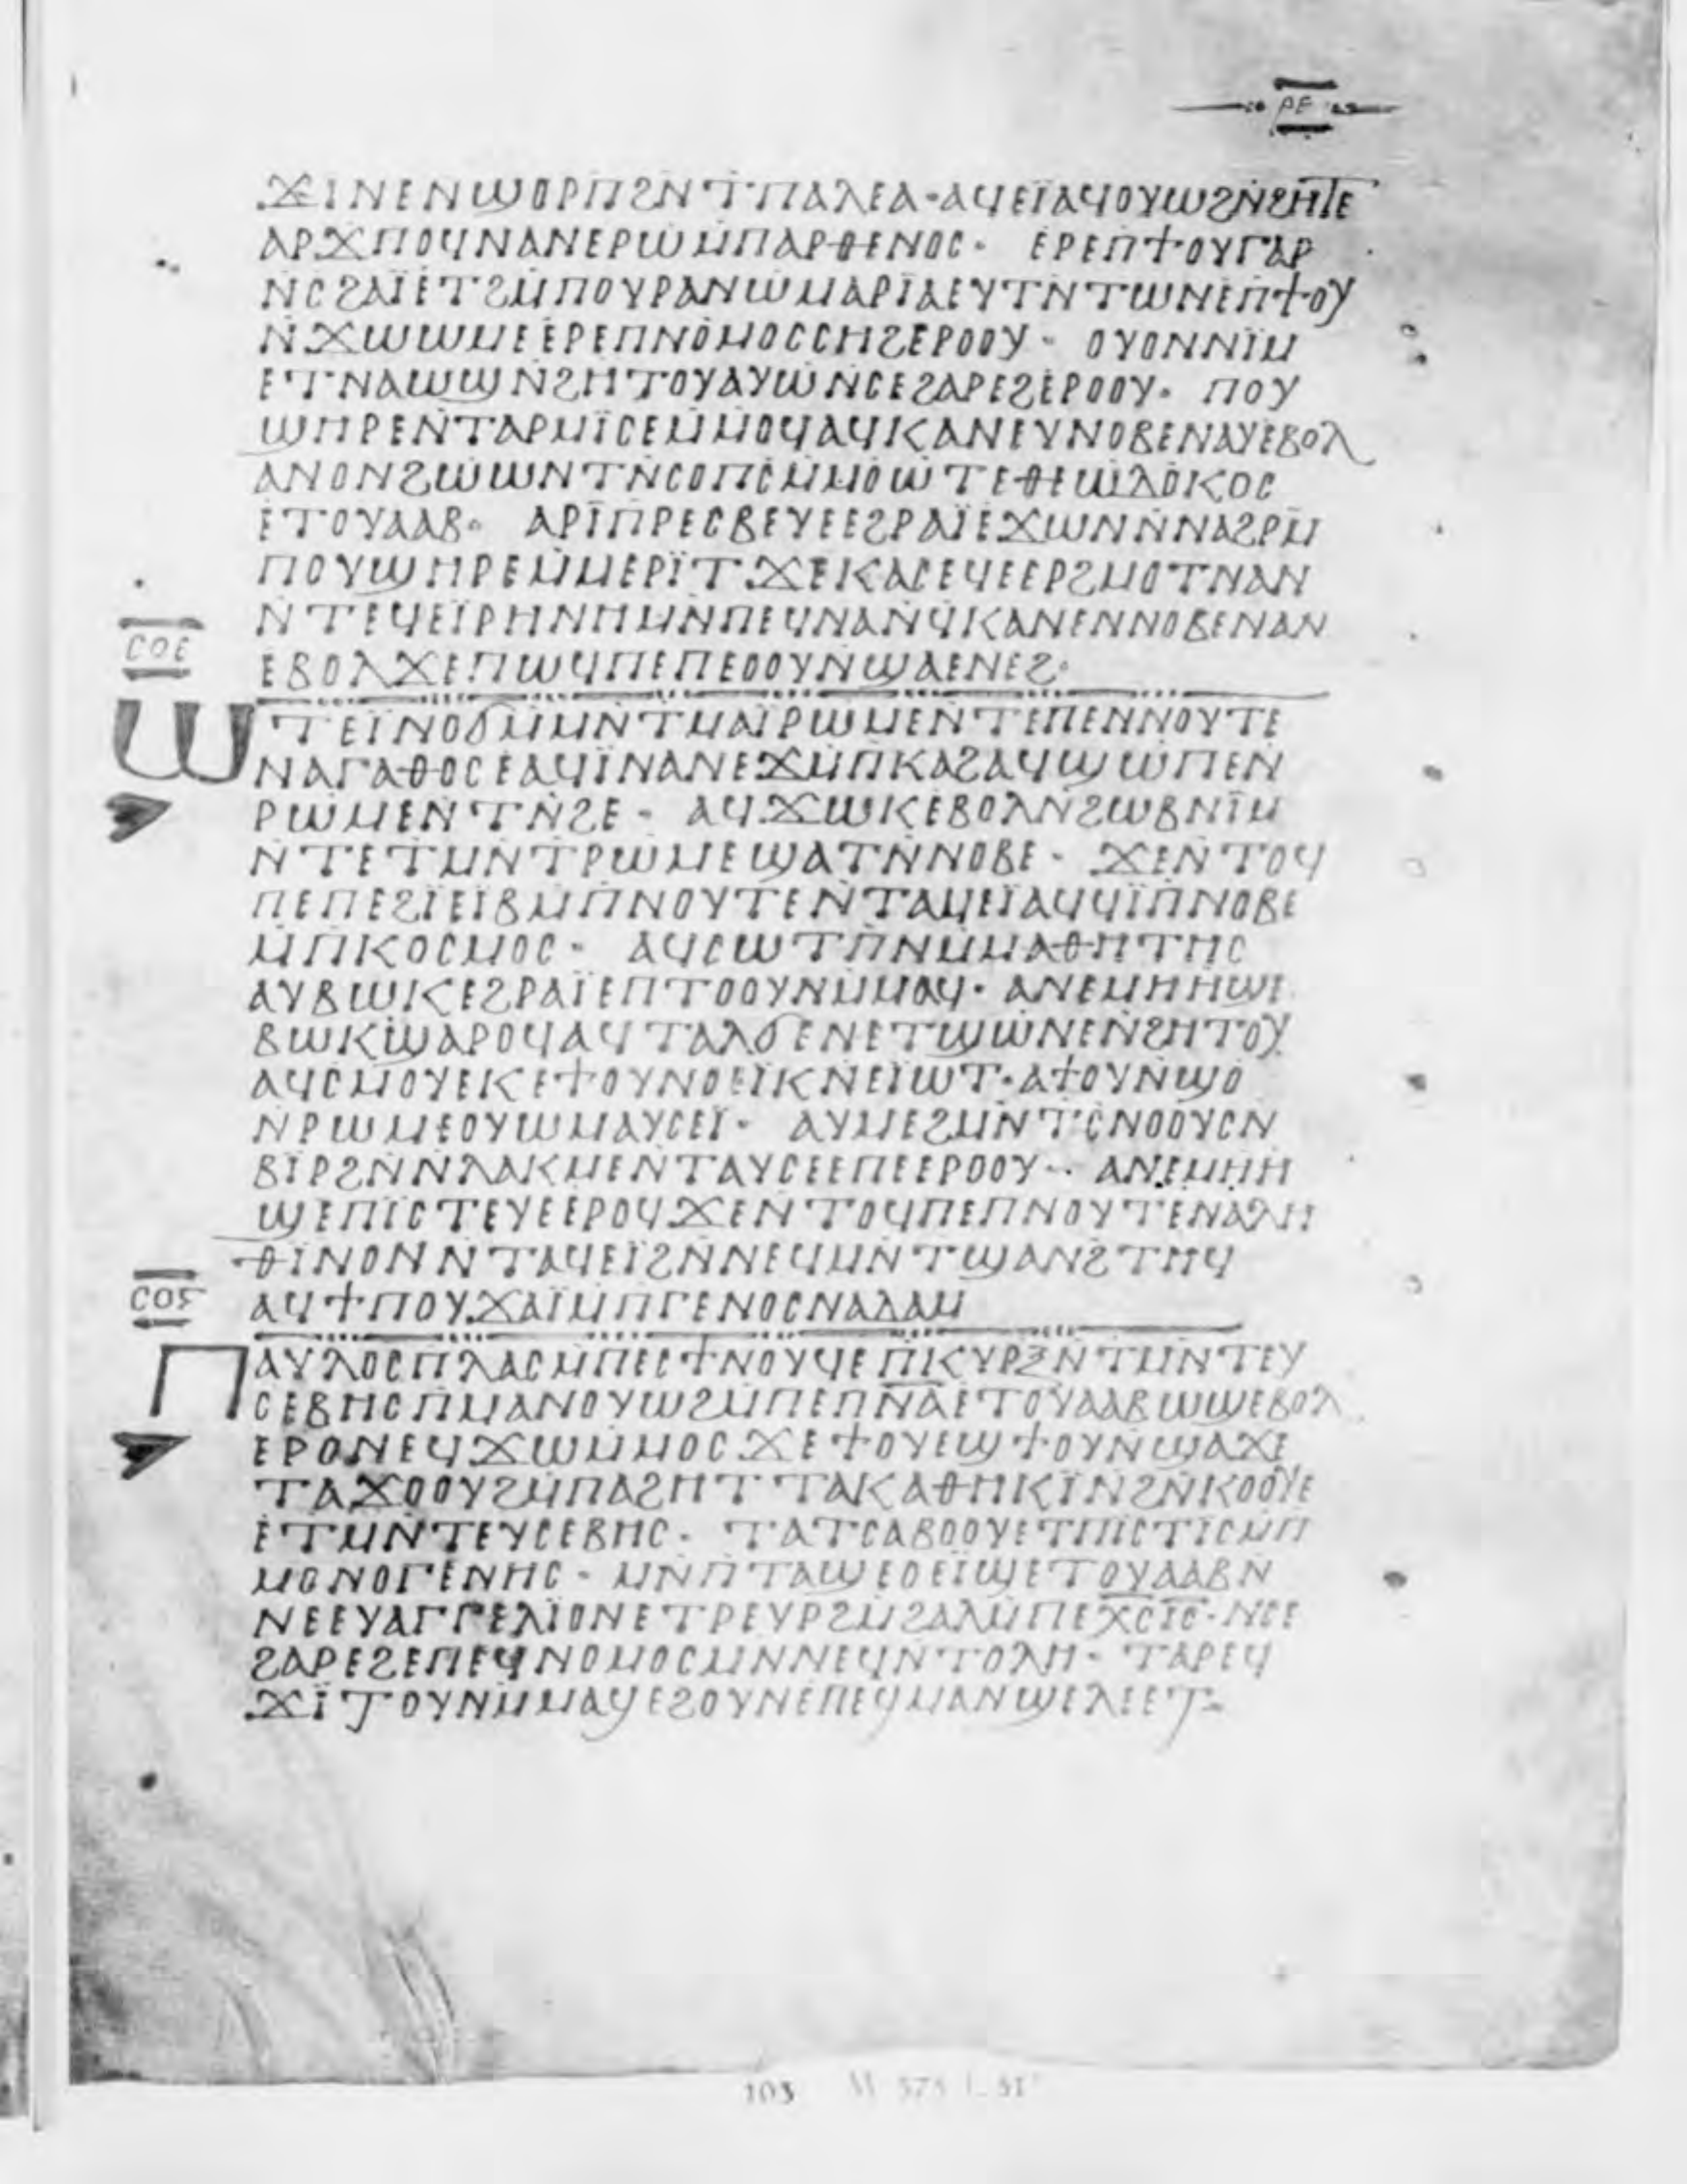 ⲣⲉ
ϫⲓⲛⲉⲛϣⲟⲣⲡϩⲛⲧⲡⲁⲗⲉⲁ· ⲁϥⲉⲓ̈ⲁϥⲟⲩⲱϩⲛ̄ϩⲏⲧⲉ
ⲁⲣϫⲡⲟϥⲛⲁⲛⲉⲣⲱⲙ̇ⲡⲁⲣⲑⲉⲛⲟⲥ· ⲉⲣⲉⲡϯⲟⲩⲅⲁⲣ
ⲛ̇ⲥϩⲁⲓ̈ⲉⲧϩⲙ̇ⲡⲟⲩⲣⲁⲛⲱⲙⲁⲣⲓ̈ⲁⲉⲩⲧⲛ̇ⲧⲱⲛⲉⲡϯⲟⲩ
ⲛ̇ϫⲱⲱⲙⲉⲉⲣⲉⲡⲛⲟⲙⲟⲥⲥⲏϩⲉⲣⲟⲟⲩ· ⲟⲩⲟⲛⲛⲓ̈ⲙ
ⲉⲧⲛⲁⲱϣⲛ̇ϩⲏⲧⲟⲩⲁⲩⲱⲛ̇ⲥⲉϩⲁⲣⲉϩⲉⲣⲟⲟⲩ· ⲡⲟⲩ
ϣⲏⲣⲉⲛ̇ⲧⲁⲣⲙⲓ̈ⲥⲉⲙ̇ⲙⲟϥⲁϥⲕⲁⲛⲉⲩⲛⲟⲃⲉⲛⲁⲩⲉⲃⲟⲗ
ⲁⲛⲟⲛϩⲱⲱⲛⲧⲛ̇ⲥⲟⲡⲥⲙ̇ⲙⲟⲱⲧⲉⲑⲉⲱⲇⲟⲕⲟⲥ
ⲉⲧⲟⲩⲁⲁⲃ· ⲁⲣⲓ̈ⲡⲣⲉⲥⲃⲉⲩⲉⲉϩⲣⲁⲓ̈ⲉϫⲱⲛⲛ̇ⲛⲁϩⲣⲙ
ⲡⲟⲩϣⲏⲣⲉⲙ̇ⲙⲉⲣⲓ̈ⲧϫⲉⲕⲁⲥⲉϥⲉⲉⲣϩⲙⲟⲧⲛⲁⲛ
ⲛ̇ⲧⲉϥⲉⲓ̈ⲣⲏⲛⲏⲙⲛ̇ⲡⲉϥⲛⲁⲛ̇ϥⲕⲁⲛⲉⲛⲛⲟⲃⲉⲛⲁⲛ
ⲉⲃⲟⲗϫⲉⲡⲱϥⲡⲉⲡⲉⲟⲟⲩⲛ̇ϣⲁⲉⲛⲉϩ·
ⲥⲟⲉ
ⲱⲧⲉⲓ̈ⲛⲟϭⲙ̇ⲙⲛ̇ⲧⲙⲁⲓ̈ⲣⲱⲙⲉⲛ̇ⲧⲉⲡⲉⲛⲛⲟⲩⲧⲉ
ⲛⲁⲅⲁⲑⲟⲥⲉⲁϥⲓ̈ⲛⲁⲛⲉϫⲙ̇ⲡⲕⲁϩⲁϥϣⲱⲡⲉⲛ̇
ⲣⲱⲙⲉⲛ̇ⲧⲛ̇ϩⲉ· ⲁϥϫⲱⲕⲉⲃⲟⲗⲛ̇ϩⲱⲃⲛⲓ̈ⲙ
ⲛ̇ⲧⲉⲧⲙⲛ̇ⲧⲣⲱⲙⲉϣⲁⲧⲛ̇ⲛⲟⲃⲉ· ϫⲉⲛ̇ⲧⲟϥ
ⲡⲉⲡⲉϩⲓ̈ⲉⲓ̈ⲃⲙ̇ⲡⲛⲟⲩⲧⲉⲛ̇ⲧⲁϥⲉⲓ̈ⲁϥϥⲓ̈ⲡ̇ⲛⲟⲃⲉ
ⲙ̇ⲡⲕⲟⲥⲙⲟⲥ· ⲁϥⲥⲱⲧⲡ̇ⲛⲙ̇ⲙⲁⲑⲏⲧⲏⲥ
ⲁⲩⲃⲱⲕⲉϩⲣⲁⲓ̈ⲉⲡⲧⲟⲟⲩⲛⲙ̇ⲙⲁϥ· ⲁⲛⲉⲙⲏⲏϣⲉ
ⲃⲱⲕϣⲁⲣⲟϥⲁϥⲧⲁⲗϭⲉⲛⲉⲧϣⲱⲛⲉⲛ̇ϩⲏⲧⲟⲩ
ⲁϥⲥⲙⲟⲩⲉⲕⲉϯⲟⲩⲛⲟⲉⲓ̈ⲕⲛⲉⲓ̈ⲱⲧ· ⲁϯⲟⲩⲛ̇ϣⲟ
ⲛ̇ⲣⲱⲙⲉⲟⲩⲱⲙⲁⲩⲥⲉⲓ̈· ⲁⲩⲙⲉϩⲙⲛ̇ⲧⲥⲛⲟⲟⲩⲥⲛ
ⲃⲓ̈ⲣϩⲛ̇ⲛⲗⲁⲕⲙⲉⲛ̇ⲧⲁⲩⲥⲉⲉⲡⲉⲉⲣⲟⲟⲩ·· ⲁⲛⲉⲙⲏⲏ
ϣⲉⲡⲓ̈ⲥⲧⲉⲩⲉⲉⲣⲟϥϫⲉⲛ̇ⲧⲟϥⲡⲉⲡⲛⲟⲩⲧⲉⲛⲁⲗⲏ
ⲑⲓⲛⲟⲛⲛ̇ⲧⲁϥⲉⲓ̈ϩⲛ̇ⲛⲉϥⲙⲛ̇ⲧϣⲁⲛϩⲧⲏϥ
ⲥⲟⲋ
ⲁϥϯⲡⲟⲩϫⲁⲓ̈ⲙ̇ⲡⲅⲉⲛⲟⲥⲛⲁⲇⲁⲙ
ⲡⲁⲩⲗⲟⲥⲡⲗⲁⲥⲙ̇ⲡⲉⲥϯⲛⲟⲩϥⲉⲡⲕⲩⲣⲝ̄ⲛ̇ⲧⲙⲛ̇ⲧⲉⲩ
ⲥⲉⲃⲏⲥⲡⲙⲁⲛⲟⲩⲱϩⲙ̇ⲡⲉⲡ̅ⲛ̅ⲁ̅ⲉⲧⲟⲩⲁⲁⲃⲱϣⲉⲃⲟⲗ
ⲉⲣⲟⲛⲉϥϫⲱⲙ̇ⲙⲟⲥϫⲉϯⲟⲩⲉϣϯⲟⲩⲛ̇ϣⲁϫⲉ
ⲧⲁϫⲟⲟⲩϩⲙ̇ⲡⲁϩⲏⲧⲧⲁⲕⲁⲑⲏⲕⲓ̈ⲛϩⲛ̇ⲕⲟⲟⲩⲉ
ⲉⲧⲙⲛ̇ⲧⲉⲩⲥⲉⲃⲏⲥ· ⲧⲁⲧⲥⲁⲃⲟⲟⲩⲉⲧⲡⲓⲥⲧⲓⲥⲙ̇ⲡ
ⲙⲟⲛⲟⲅⲉⲛⲏⲥ· ⲙⲛ̇ⲡⲧⲁϣⲉⲟⲉⲓ̈ϣⲉⲧⲟⲩⲁⲁⲃⲛ
ⲛⲉⲉⲩⲁⲅⲅⲉⲗⲓ̈ⲟⲛⲉⲧⲣⲉⲩⲣϩⲙ̇ϩⲁⲗⲙ̇ⲡⲉⲭ̅ⲥ̅ⲓ̅ⲥ̅· ⲛⲥⲉ
ϩⲁⲣⲉϩⲉⲡⲉϥⲛⲟⲙⲟⲥⲙⲛ̇ⲛⲉϥⲛ̇ⲧⲟⲗⲏ· ⲧⲁⲣⲉϥ
ϫⲓ̈ⲧⲟⲩⲛⲙ̇ⲙⲁϥⲉϩⲟⲩⲛⲉⲡⲉϥⲙⲁⲛϣⲉⲗⲉⲉⲧ·
103 M 575 f. 51